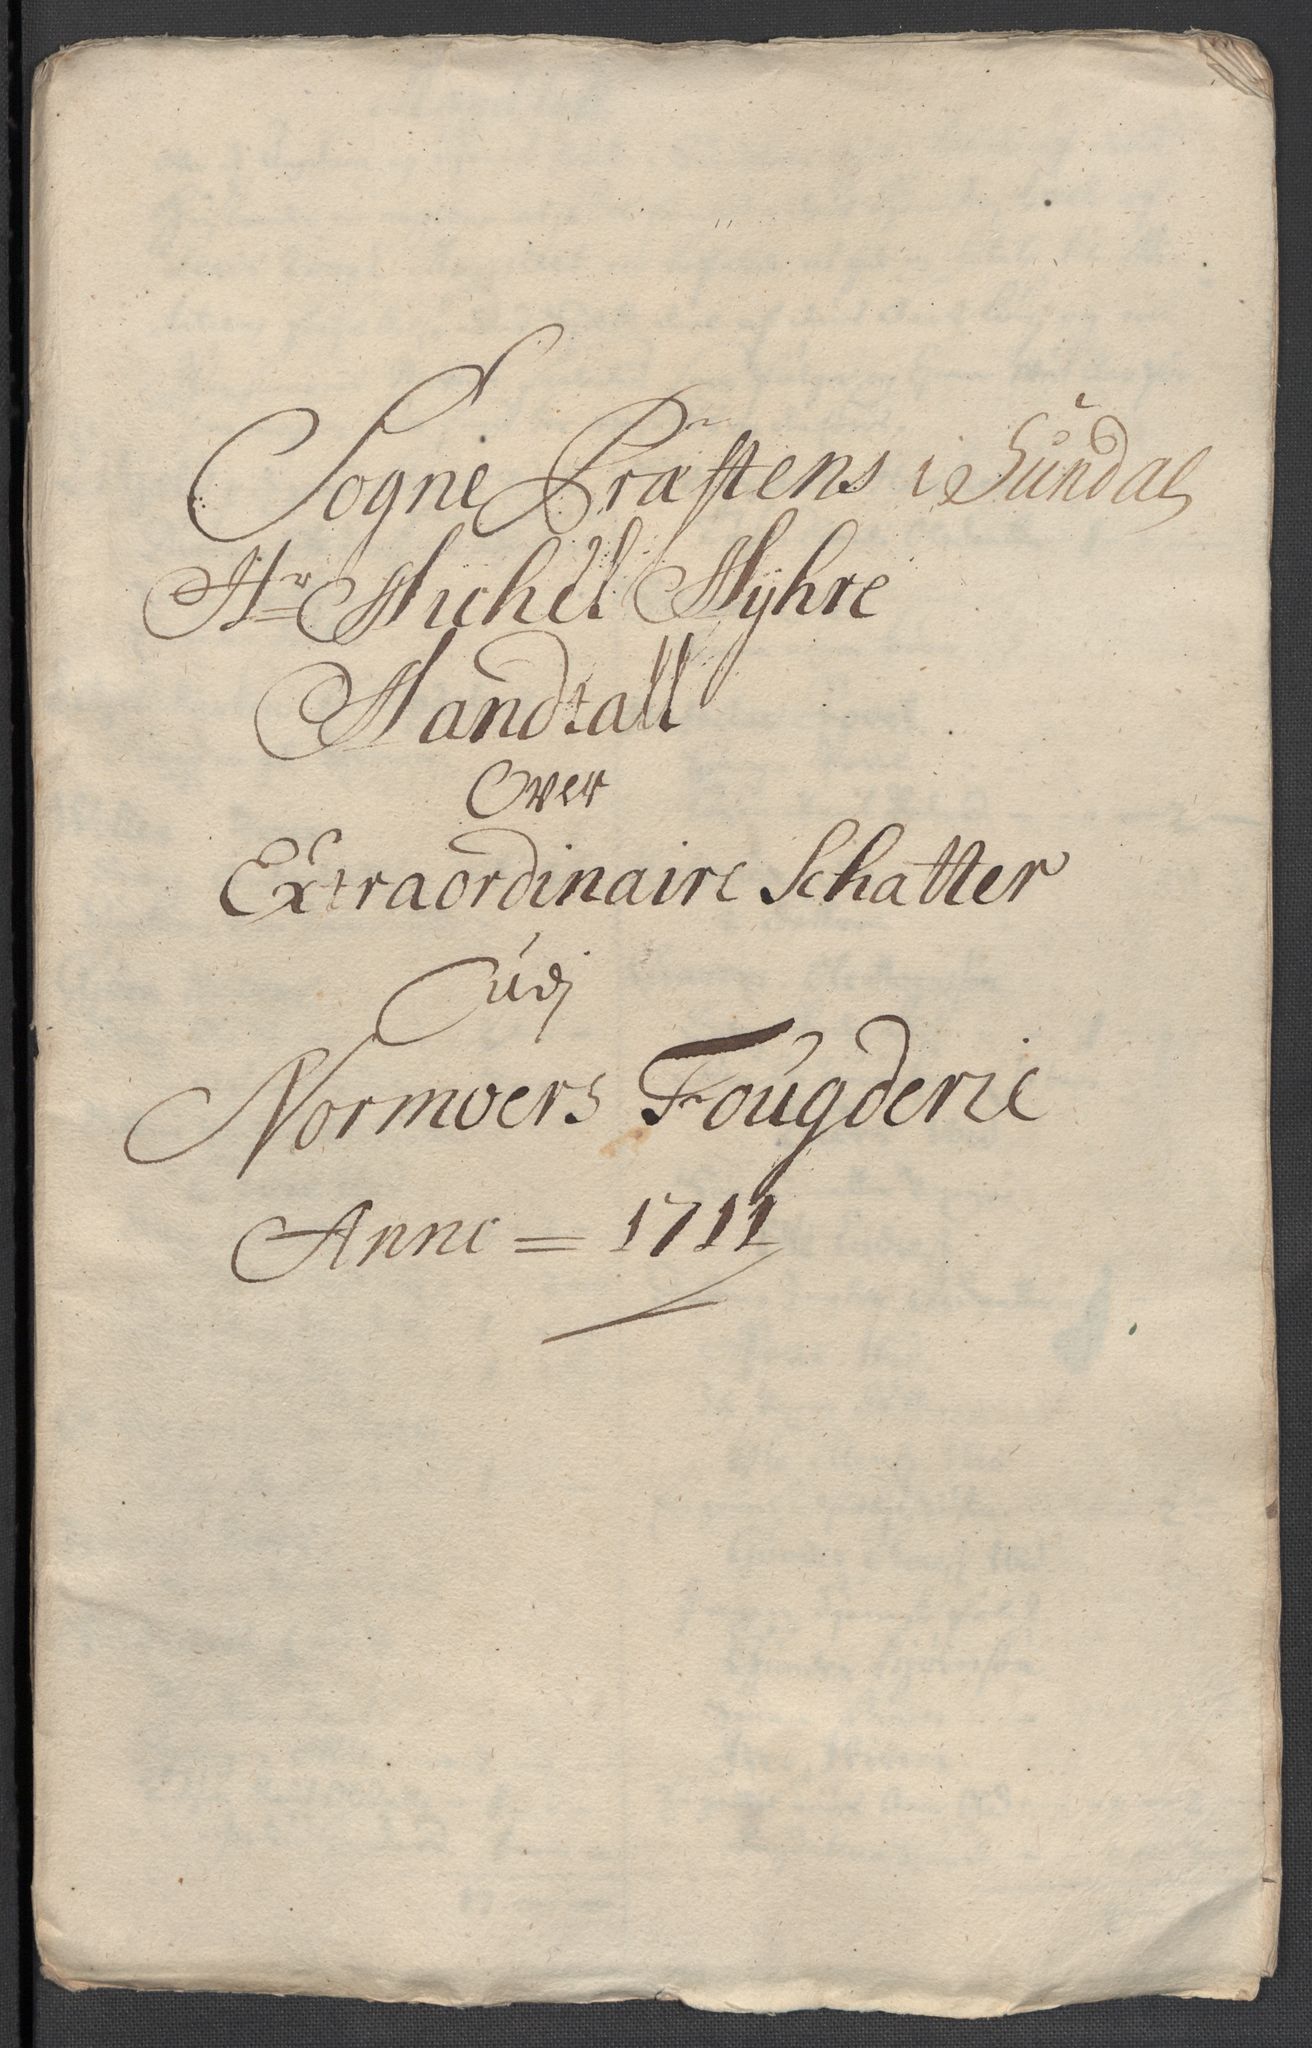 Sogne Præstens i Sundal
Hr Michel Myhre
Mandtall
Over
Extraordinaire Schatter
Udj
Normoers Fougderie
Anno = 1711